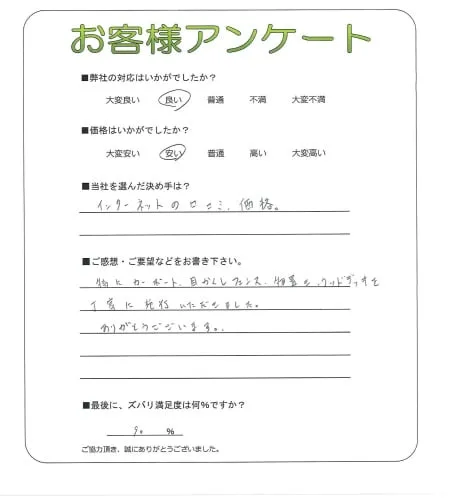 お客様アンケート
■弊社の対応はいかがでしたか?
大変良い 良い 普通 不満 大変不満
■価格はいかがでしたか?
大変安い 安い 普通 高い 大変高い
■当社を選んだ決め手は?
インターネットの口コミ、価格。
■ご感想・ご要望などをお書き下さい。
特にカーポート、目かくしフェンス、物置を、ウッドデッキを
丁寧に施行いただきました。
ありがとうございます。
■最後に、ズバリ満足度は何%ですか?
90 %
ご協力頂き、誠にありがとうございました。